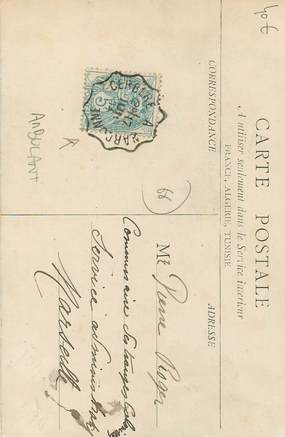 CARTE POSTALE
A utiliser seulement dans le Service intérieur
FRANCE, ALGERIE, TUNISIE
CORRESPONDANCE
ADRESSE
40 €
AMBULANT
66
CERBERE A NARBONNE
5
Mr Pierre Roger
Commissaire des troupes
Service administratif
Marseille